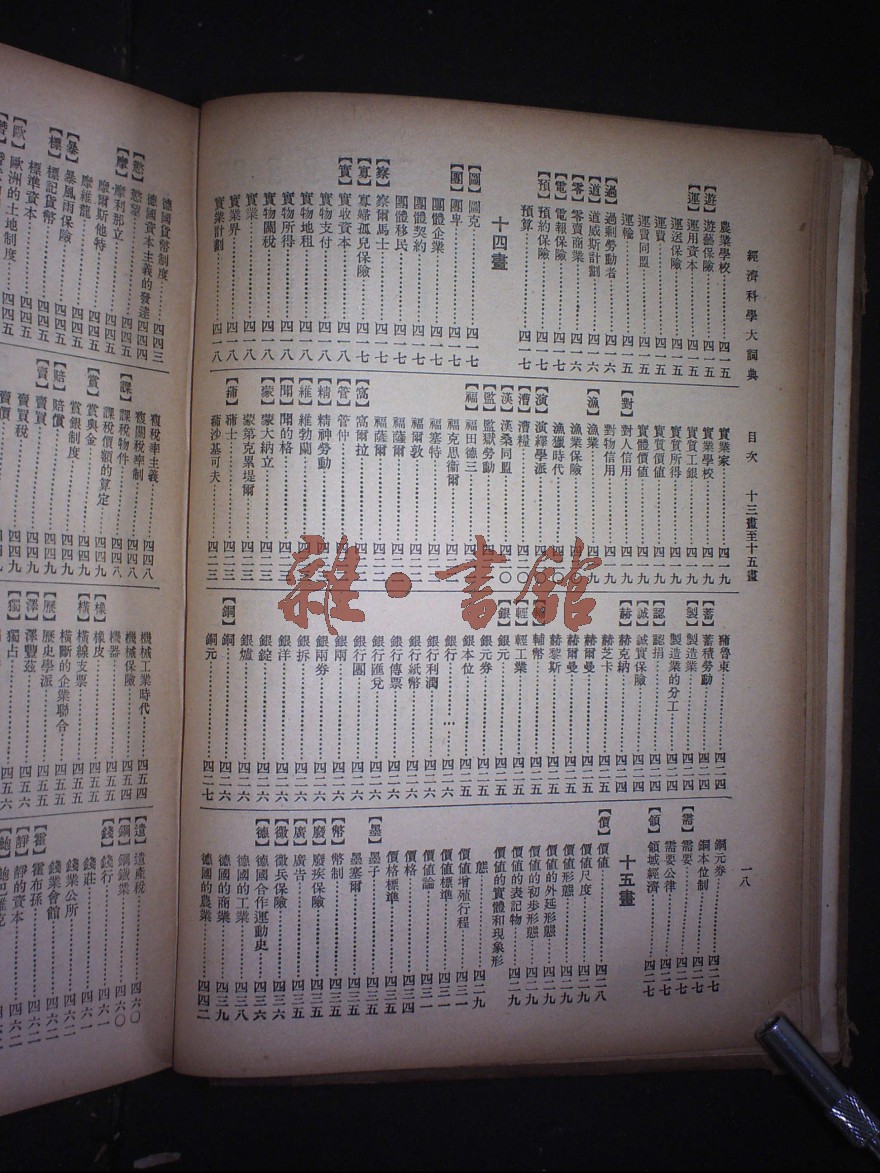 經濟科學大詞典 目次 十三畫至十五畫 一八
農業學校 四一五
【遊】遊藝保險 四一五
【運】運用資本 四一五
運送保險 四一五
運費 四一五
運費同盟 四一五
運輸 四一五
【過】過剩勞動者 四一六
【道】道威斯計劃 四一六
【零】零賣商業 四一六
【電】電報保險 四一七
【預】預約保險 四一七
預算 四一七
十四畫
【圖】圖克 四一七
【團】團卑 四一七
團體企業 四一七
團體契約 四一七
團體移民 四一七
【察】察爾馬士 四一七
【寡】寡婦孤兒保險 四一七
【實】實收資本 四一八
實物支付 四一八
實物地租 四一八
實物所得 四一八
實物關稅 四一八
實業 四一八
實業界 四一八
實業計劃 四一八
實業家 四一九
實業學校 四一九
實質工銀 四一九
實質所得 四一九
實質價值 四一九
實體價值 四一九
【對】對人信用 四一九
對物信用 四一九
【漁】漁業 四一九
漁業保險
漁獵時代
【演】演繹學派
【漕】漕糧
【漢】漢桑同盟
【監】監獄勞動
【福】福田德三
福克思衞爾
福塞特
福爾敦
福薩爾
福薩爾
【窩】窩爾拉
【管】管仲
【精】精神勞動
【維】維勃蘭
【聞】聞的格
【蒙】蒙大納立 四二三
蒙第克累堤爾 四二三
【蒲】蒲士 四二三
蒲沙基可夫 四二三
蒲魯東 四二四
【蓄】蓄積勞動 四二四
【製】製造業 四二四
製造業的分工 四二四
【認】認捐 四二四
【誠】誠實保險 四二四
【赫】赫克納 四二四
赫芝卡 四二四
赫爾曼 四二五
赫爾曼 四二五
赫黎斯 四二五
輔幣 四二五
【輕】輕工業 四二五
【銀】銀元 四二五
銀元券 四二五
銀本位 四二五
銀行
銀行利潤 四二六
銀行紙幣 四二六
銀行傳票 四二六
銀行匯兌 四二六
銀行團 四二六
銀兩 四二六
銀兩券 四二六
銀拆 四二六
銀洋 四二六
銀錠 四二六
銀爐 四二六
【銅】銅 四二六
銅元 四二七
銅元券 四二七
銅本位制 四二七
【需】需要 四二七
需要公律 四二七
【領】領域經濟 四二七
十五畫
【價】價值 四二八
價值尺度 四二九
價值形態 四二九
價值的外延形態 四二九
價值的初步形態 四二九
價值的表記物 四二九
價值的實體和現象形
態 四二九
價值增殖行程 四三一
價值標準 四三一
價值論 四三一
價格 四三四
價格標準 四三五
【墨】墨子 四三五
墨塞爾 四三五
【幣】幣制 四三五
【廢】廢疾保險 四三五
【廣】廣告 四三五
【徵】徵兵保險 四三六
【德】德國合作運動史 四三六
德國的工業 四三八
德國的商業 四三九
德國的農業 四四二
德國貨幣制度 四四三
德國資本主義的發達 四四四
【慾】慾望 四四四
【摩】摩利那立 四四五
摩爾斯他特 四四五
摩維龍 四四五
【暴】暴風雨保險 四四五
【標】標記貨幣 四四五
標準資本 四四五
【歐】歐洲的土地制度 四四五
複稅率主義 四四八
複關稅率制 四四八
【課】課稅物件 四四八
課稅價額的算定 四四九
【賞】賞與金 四四九
賞銀制度 四四九
【賠】賠償 四四九
【賣】賣買 四四九
賣買稅 四四九
賣價
機械工業時代 四五四
機械保險 四五四
機器 四五五
【橡】橡皮 四五五
【橫】橫線支票 四五五
橫斷的企業聯合 四五五
【歷】歷史學派 四五五
【澤】澤豐茲 四五六
【獨】獨占 四五六
【遺】遺產稅 四六〇
【鋼】鋼鐵業 四六〇
【錢】錢行 四六一
錢莊 四六一
錢業公所 四六二
錢業會館 四六二
【霍】霍布孫 四六二
【靜】靜的資本 四六二
雜·書館